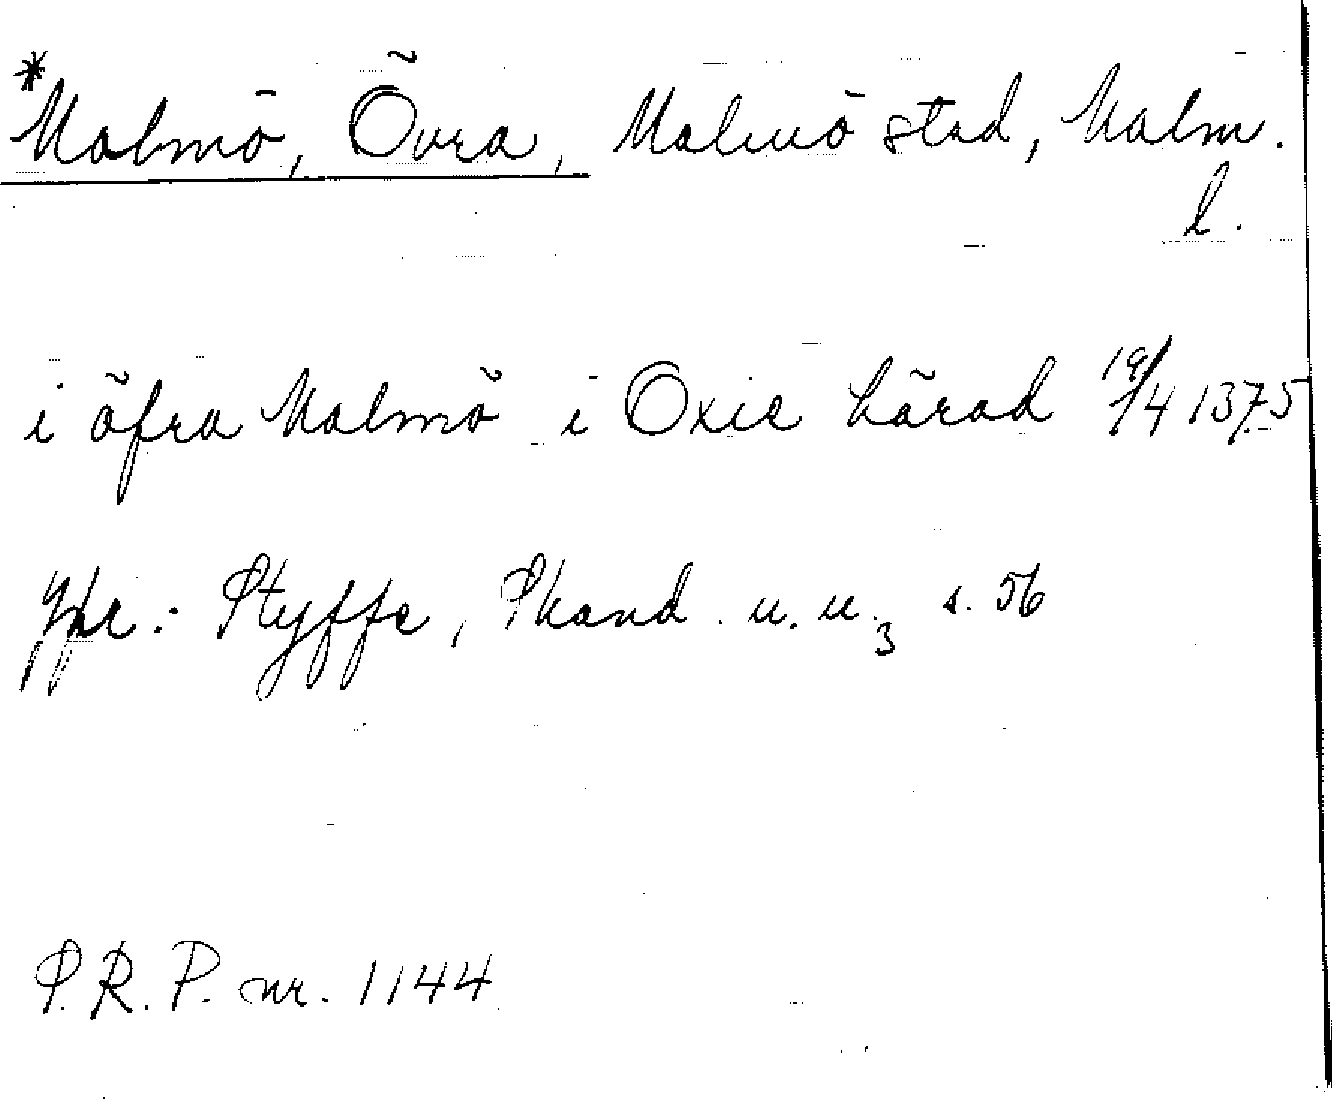 *Malmö, Övra, Malmö stad, Malm.
l.
i öfra Malmö i Oxie härad 19/4 1375
Styffe, Skand. u. u.3 s. 56
S.R.P. nr. 1144